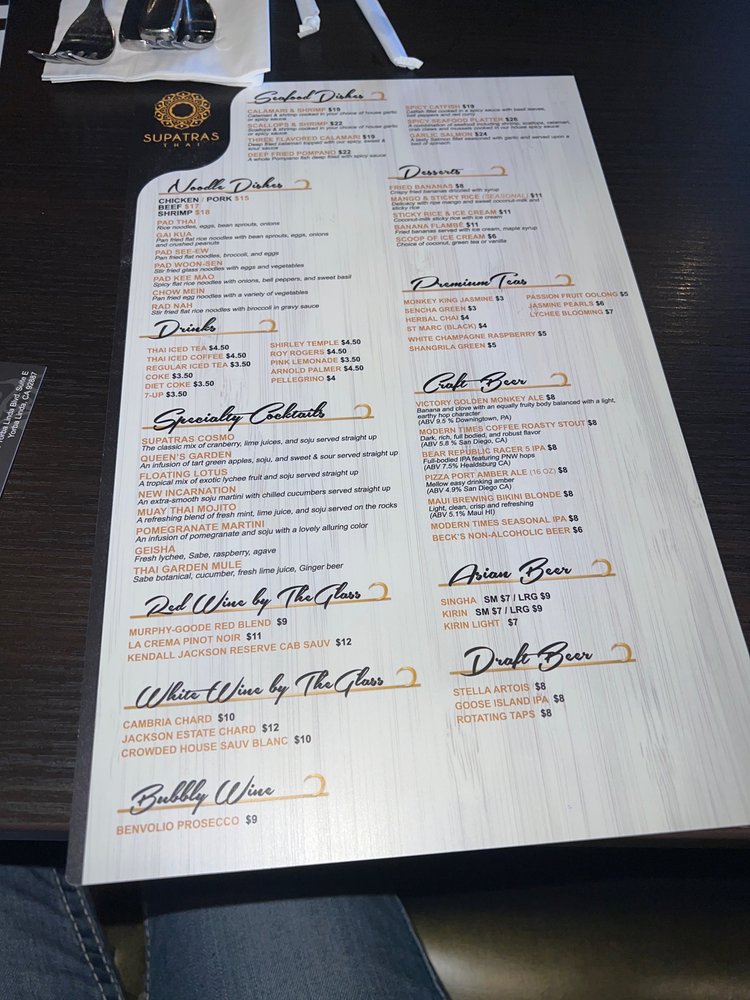 SUPATRAS
THAI
Seafood Dishes
CALAMARI & SHRIMP $19
Calamari & shrimp cooked in your choice of house garlic
or spicy sauce
SCALLOPS & SHRIMP $22
Scallops & shrimp cooked in your choice of house garlic
or spicy sauce
THREE FLAVORED CALAMARI $19
Deep fried calamari topped with our spicy, sweet &
sour sauce
DEEP FRIED POMPANO $22
A whole Pompano fish deep fried with spicy sauce
SPICY CATFISH $19
Catfish fillet cooked in a spicy sauce with basil leaves,
bell peppers and red curry
SPICY SEAFOOD PLATTER $26
A combination of seafood including shrimp, scallops, calamari,
crab claws and mussels cooked in our house spicy sauce
GARLIC SALMON $24
A tasty Salmon fillet seasoned with garlic and served upon a
bed of spinach
Noodle Dishes
CHICKEN / PORK $15
BEEF $17
SHRIMP $18
PAD THAI
Rice noodles, eggs, bean sprouts, onions
GAI KUA
Pan fried flat rice noodles with bean sprouts, eggs, onions
and crushed peanuts
PAD SEE-EW
Pan fried flat noodles, broccoli, and eggs
PAD WOON-SEN
Stir fried glass noodles with eggs and vegetables
PAD KEE MAO
Spicy flat rice noodles with onions, bell peppers, and sweet basil
CHOW MEIN
Pan fried egg noodles with a variety of vegetables
RAD NAH
Stir fried flat rice noodles with broccoli in gravy sauce
Desserts
FRIED BANANAS $8
Crispy fried bananas drizzled with syrup
MANGO & STICKY RICE (SEASONAL) $11
Delicacy with ripe mango and sweet coconut-milk and
sticky rice
STICKY RICE & ICE CREAM $11
Coconut-milk sticky rice with ice cream
BANANA FLAMBÉ $11
Fried bananas served with ice cream, maple syrup
SCOOP OF ICE CREAM $6
Choice of coconut, green tea or vanilla
Premium Teas
MONKEY KING JASMINE $3
SENCHA GREEN $3
HERBAL CHAI $4
ST MARC (BLACK) $4
WHITE CHAMPAGNE RASPBERRY $5
SHANGRILA GREEN $5
PASSION FRUIT OOLONG $5
JASMINE PEARLS $6
LYCHEE BLOOMING $7
Drinks
THAI ICED TEA $4.50
THAI ICED COFFEE $4.50
REGULAR ICED TEA $3.50
COKE $3.50
DIET COKE $3.50
7-UP $3.50
SHIRLEY TEMPLE $4.50
ROY ROGERS $4.50
PINK LEMONADE $3.50
ARNOLD PALMER $4.50
PELLEGRINO $4
Specialty Cocktails
SUPATRAS COSMO
The classic mix of cranberry, lime juices, and soju served straight up
QUEEN'S GARDEN
An infusion of tart green apples, soju, and sweet & sour served straight up
FLOATING LOTUS
A tropical mix of exotic lychee fruit and soju served straight up
NEW INCARNATION
An extra-smooth soju martini with chilled cucumbers served straight up
MUAY THAI MOJITO
A refreshing blend of fresh mint, lime juice, and soju served on the rocks
POMEGRANATE MARTINI
An infusion of pomegranate and soju with a lovely alluring color
GEISHA
Fresh lychee, Sabe, raspberry, agave
THAI GARDEN MULE
Sabe botanical, cucumber, fresh lime juice, Ginger beer
Craft Beer
VICTORY GOLDEN MONKEY ALE $8
Banana and clove with an equally fruity body balanced with a light,
earthy hop character
(ABV 9.5 % Downingtown, PA)
MODERN TIMES COFFEE ROASTY STOUT $8
Dark, rich, full bodied, and robust flavor
(ABV 5.8 % San Diego, CA)
BEAR REPUBLIC RACER 5 IPA $8
Full-bodied IPA featuring PNW hops
(ABV 7.5% Healdsburg CA)
PIZZA PORT AMBER ALE (16 OZ) $8
Mellow easy drinking amber
(ABV 4.9% San Diego CA)
MAUI BREWING BIKINI BLONDE $8
Light, clean, crisp and refreshing
(ABV 5.1% Maui HI)
MODERN TIMES SEASONAL IPA $8
BECK'S NON-ALCOHOLIC BEER $6
Asian Beer
SINGHA SM $7 / LRG $9
KIRIN SM $7 / LRG $9
KIRIN LIGHT $7
Red Wine by The Glass
MURPHY-GOODE RED BLEND $9
LA CREMA PINOT NOIR $11
KENDALL JACKSON RESERVE CAB SAUV $12
Draft Beer
STELLA ARTOIS $8
GOOSE ISLAND IPA $8
ROTATING TAPS $8
White Wine by The Glass
CAMBRIA CHARD $10
JACKSON ESTATE CHARD $12
CROWDED HOUSE SAUV BLANC $10
Bubbly Wine
BENVOLIO PROSECCO $9
Linda Blvd. Suite E
Yorba Linda, CA 92887